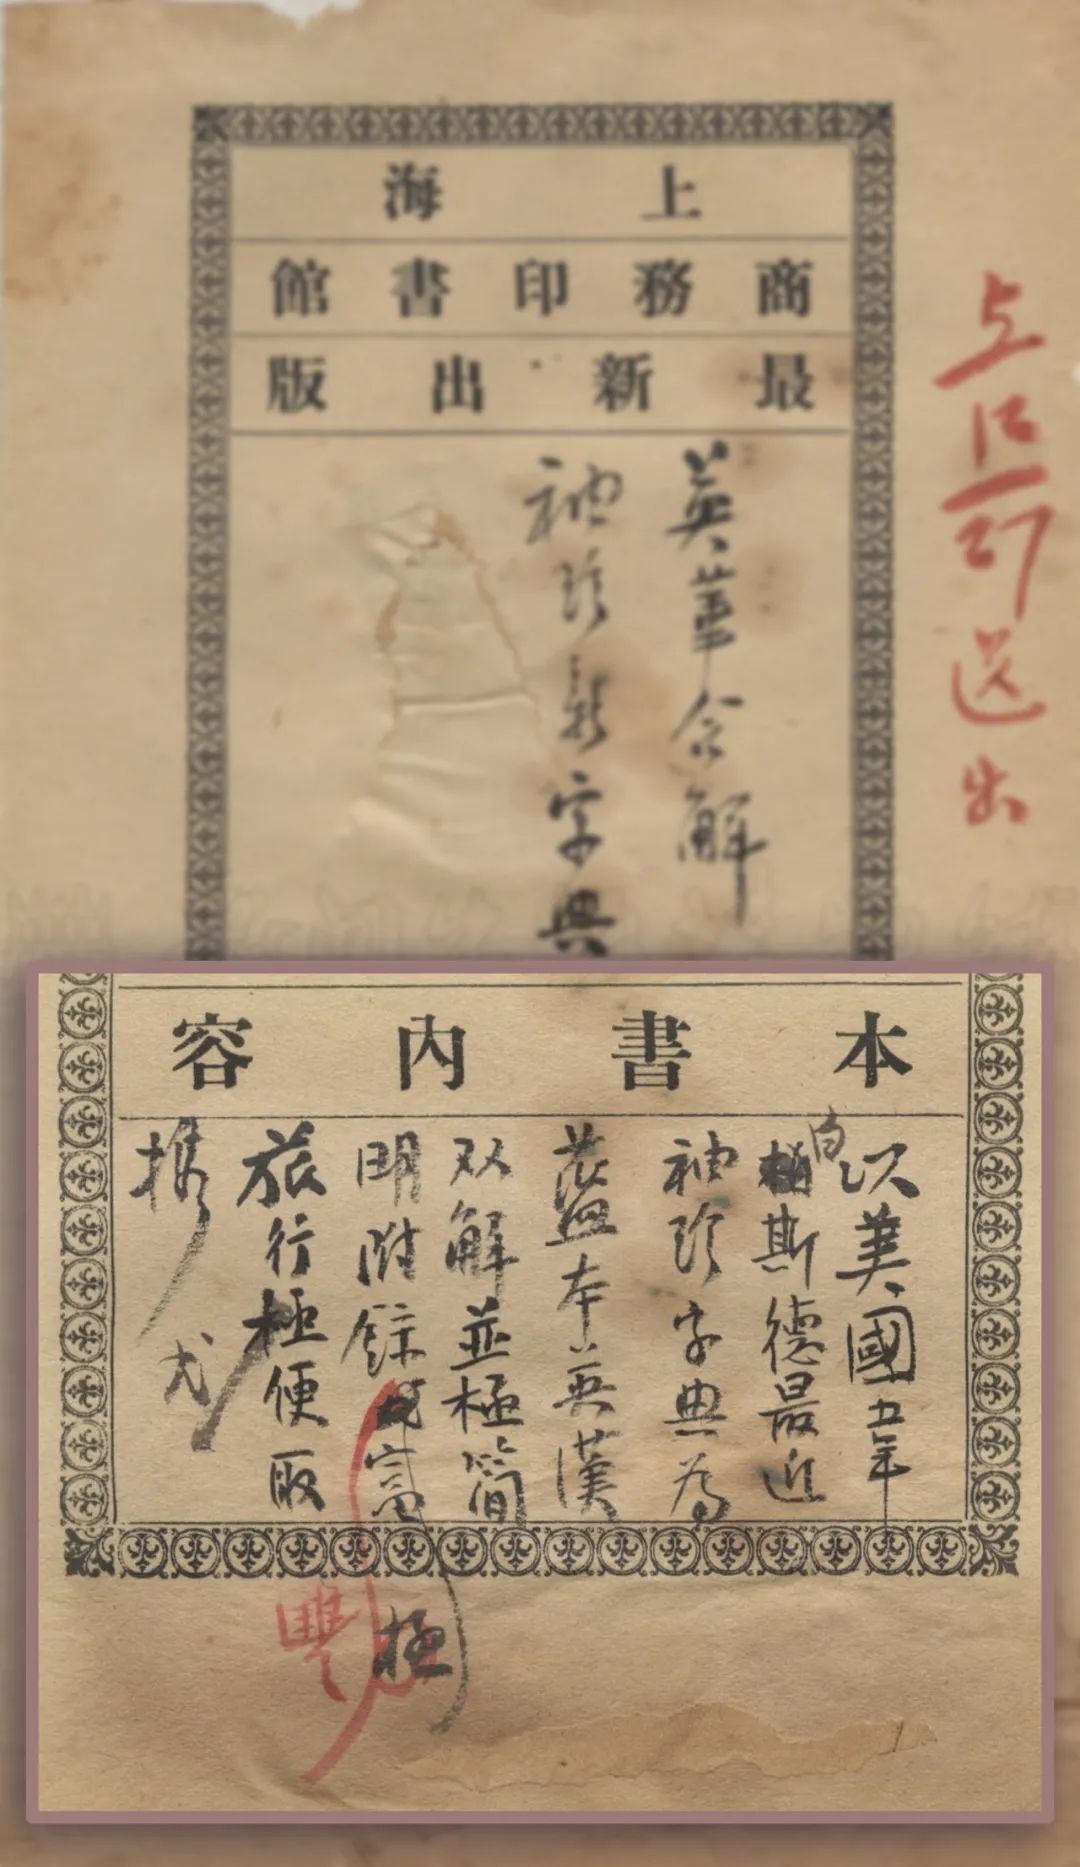 上海
商務印書館
最新出版
英華合解
袖珍新字典
送出
本書內容
以美國五年
白
斯德最近
袖珍字典為
藍本英漢
双解並極簡
明附錄富
極
豐
旅行極便取
携尤